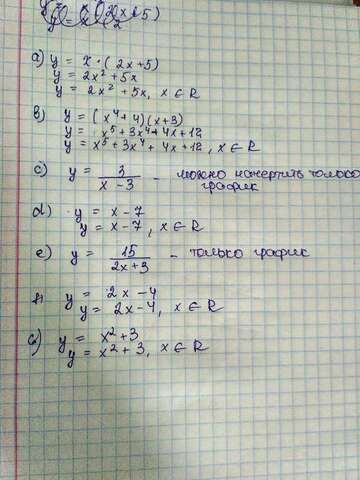 a) y = x · (2x+5)
y = 2x² + 5x
y = 2x² + 5x, x ∈ R
b) y = (x⁴ + 4)(x+3)
y = x⁵ + 3x⁴ + 4x + 12
y = x⁵ + 3x⁴ + 4x + 12, x ∈ R
c) y = 3/(x - 3) - можно начертить только
график
d) y = x - 7
y = x - 7, x ∈ R
e) y = 15/(2x + 3) - только график
y = 2x - 4
y = 2x - 4, x ∈ R
y = x² + 3
y = x² + 3, x ∈ R